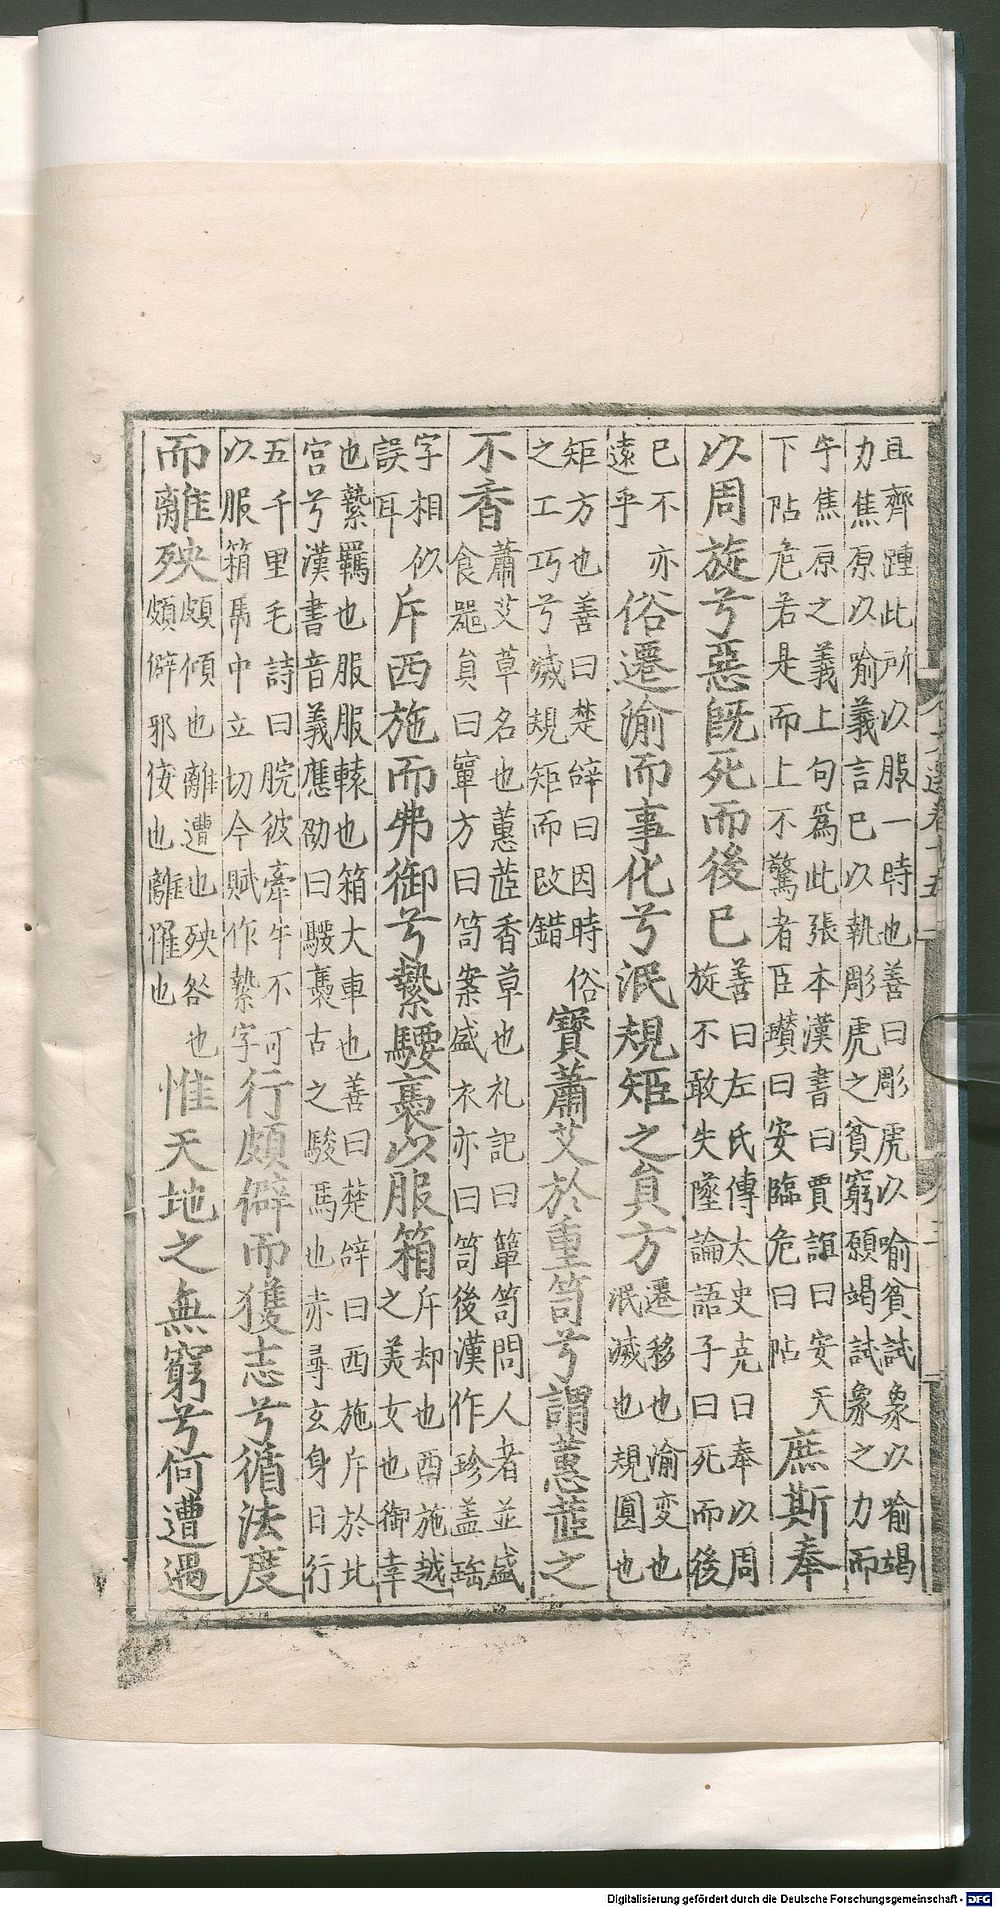 且齊踵此所以服一時也善曰彫虎以喻貧試象以喻竭
力焦原以喻義言已以執彫虎之貧窮願竭試象之力而
牛焦原之義上句爲此張本漢書曰賈誼曰安天
下阽危若是而上不驚者臣瓚曰安臨危曰阽
庶斯奉
以周旋兮惡旣死而後已
善曰左氏傳太史克曰奉以周
旋不敢失墜論語子曰死而後
已不亦
遠乎
俗遷渝而事化兮泯規矩之負方
遷移也渝变也
泯滅也規圓也
矩方也善曰楚辝曰因時俗
之工巧兮滅規矩而改錯
寳蕭艾於重笥兮謂蕙茝之
不香
蕭艾草名也蕙茝香草也礼記曰簞笥問人者並盛
食噐負曰簞方曰笥案盛衣亦曰笥後漢作珍盖珤
字相似
誤耳
斥西施而弗御兮縶騕褭以服箱
斥却也酉施越
之美女也御幸
也縶羈也服服轅也箱大車也善曰楚辝曰西施斥於北
宮兮漢書音義應劭曰騕褭古之駿馬也赤㝷玄身日行
五千里毛詩曰睆彼牽牛不可
以服箱馬中立切今賦作縶字
行頗僻而獲志兮循法度
而離殃
頗傾也離遭也殃咎也
頗僻邪佞也離惟也
惟天地之無窮兮何遭遇
Digitalisierung gefördert durch die Deutsche Forschungsgemeinschaft - DFG